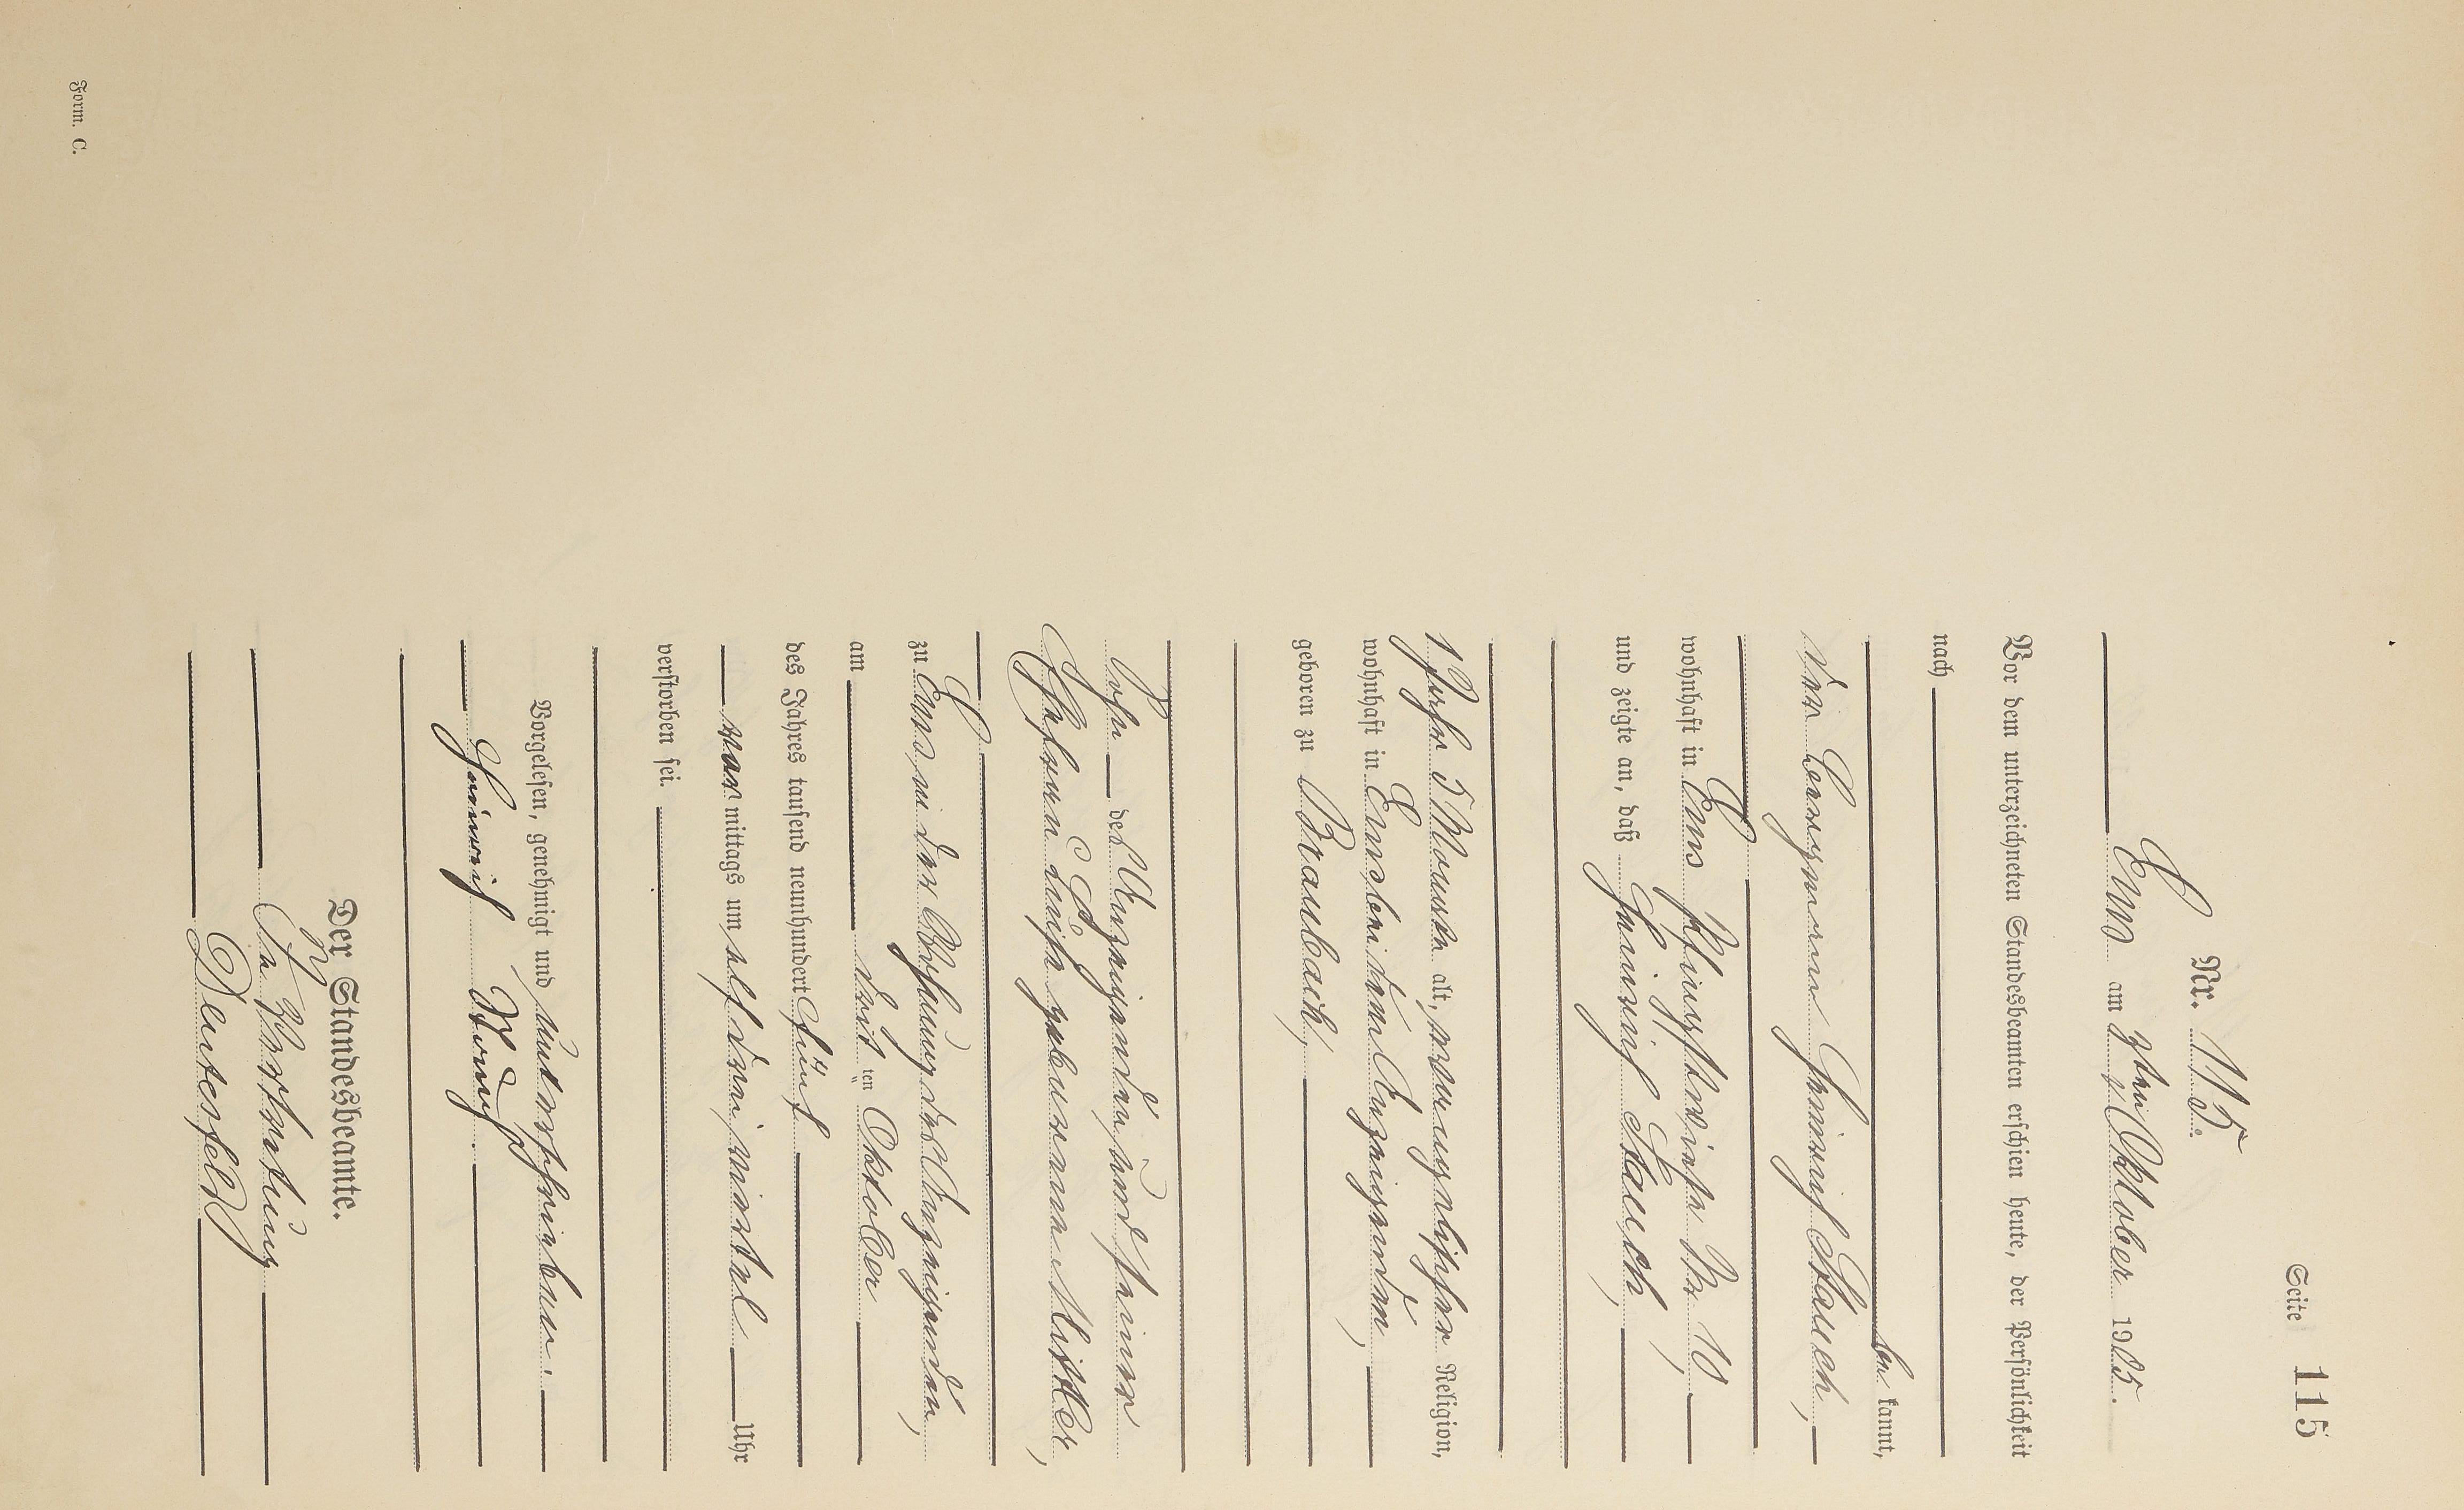 Seite 115
Nr. 115.
Ems am 3ten Oktober 1905.
Vor dem unterzeichneten Standesbeamten erschien heute, der Persönlichkeit
nach
be kannt,
der Bergmann Heinrich Stauch,
wohnhaft in Ems Pfingstwiese Nr 10,
und zeigte an, daß Heinrich Stauch,
1 Jahr 5 Monate alt, evangelischer Religion,
wohnhaft in Ems bei dem Anzeigenden,
geboren zu Braubach,
Sohn des Anzeigenden, und seiner
Ehefrau Luise geborenen Mistler,
zu Ems, in der Wohnung des Anzeigenden,
am drit ten Oktober
des Jahres tausend neunhundert fünf
vor mittags um elf dreiviertel Uhr
verstorben sei.
Vorgelesen, genehmigt und unterschrieben.
Heinrich
Der Standesbeamte.
In Vertretung
Deitesfeld
Form. C.